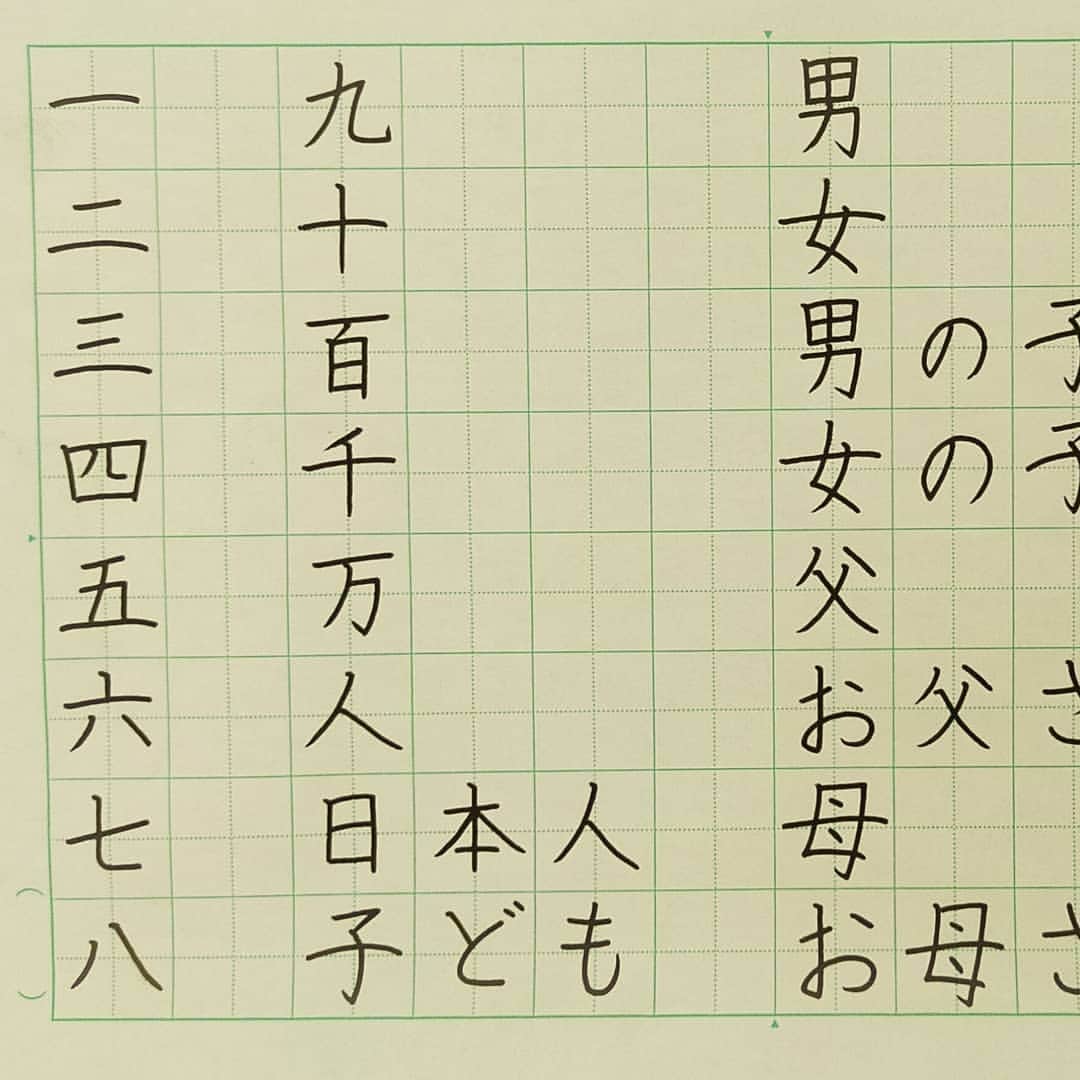 一
二
三
四
五
六
七
八
九
十
百
千
万
人
日本人
子ども
男
女
男の子
女の子
父
お父さ
母
お母さ